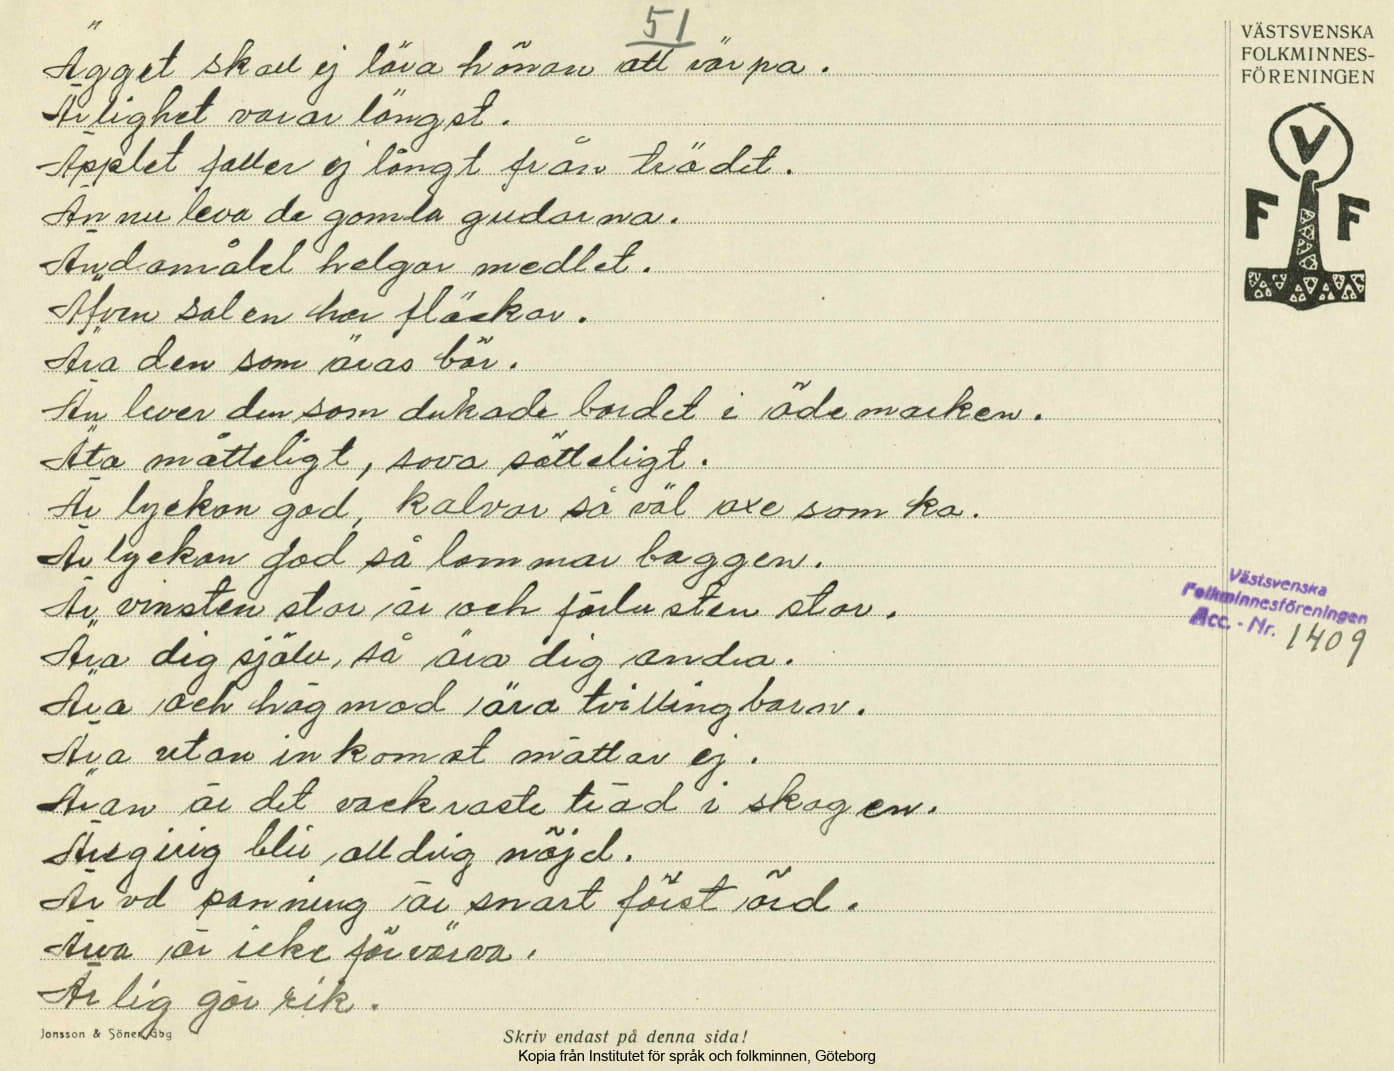 51
VÄSTSVENSKA
FOLKMINNES-
FÖRENINGEN
V
F F
Ägget skall ej lära hönan att värpa.
Ärlighet varar längst.
Äpplet faller ej långt från trädet.
Ännu leva de gamla gudarna.
Ändamålet helgar medlet.
Äfven solen har fläckar.
Ära den som äras bör.
Än lever den som dukade bordet i ödemarken.
Äta måtteligt, sova sötteligt.
Är lyckan god, kalvar så väl oxe som ko.
Är lyckan god så lammar baggen.
Är vinsten stor är och förlusten stor.
Ära dig själv, så ära dig andra.
Ära och högmod äro tvillingbarn.
Ära utan inkomst mättar ej.
Äran är det vackraste träd i skogen.
Äregirig blir alldrig nöjd.
Ärvd panning är snart först örd.
Ärva är icke förvärva.
Ärlig gör rik.
Västsvenska
Folkminnesföreningen
Acc. - Nr. 1409
Jonsson & Söner, Gbg
Skriv endast på denna sida!
Kopia från Institutet för språk och folkminnen, Göteborg